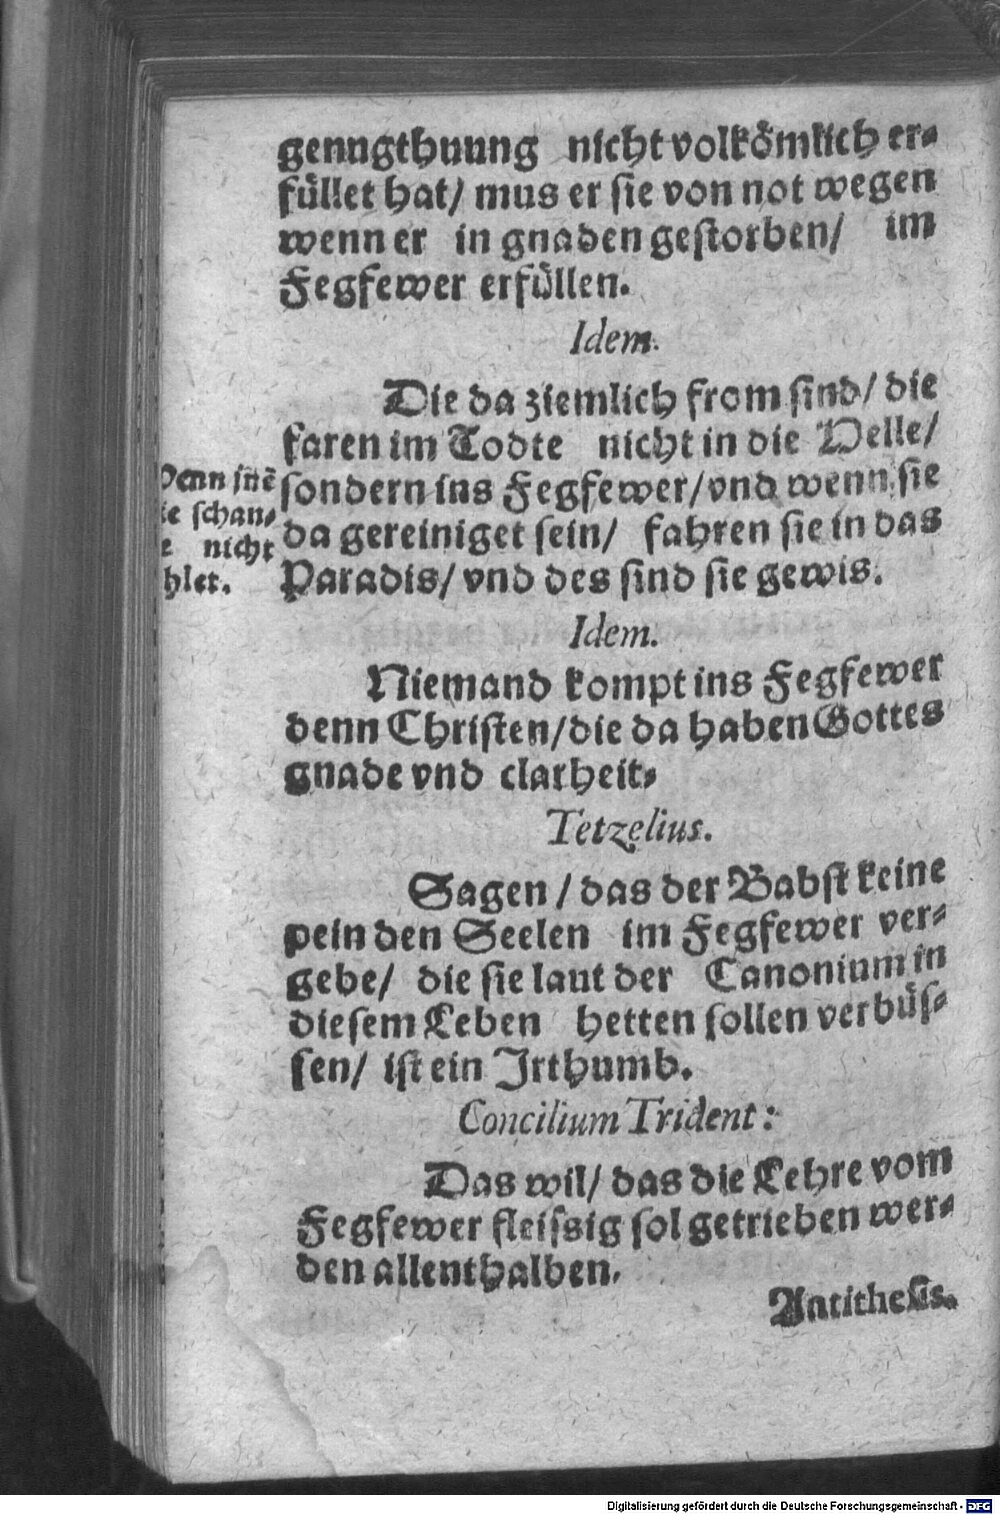 genugthuung nicht volkömlich er-
füllet hat/ mus er sie von not wegen
wenn er in gnaden gestorben/ im
Fegfewer erfüllen.
Idem.
Die da ziemlich from sind/ die
faren im Todte nicht in die Helle/
sondern ins Fegfewer/ vnd wenn sie
da gereiniget sein/ fahren sie in das
Paradis/ vnd des sind sie gewis.
schan-
nicht
Idem.
Niemand kompt ins Fegfewer
denn Christen/ die da haben Gottes
gnade vnd clarheit.
Tetzelius.
Sagen / das der Babst keine
pein den Seelen im Fegfewer ver-
gebe/ die sie laut der Canonium in
diesem Leben hetten sollen verbüs-
sen/ ist ein Irthumb.
Concilium Trident:
Das wil/ das die Lehre vom
Fegfewer fleissig sol getrieben wer-
den allenthalben.
Antithesis.
Digitalisierung gefördert durch die Deutsche Forschungsgemeinschaft - DFG